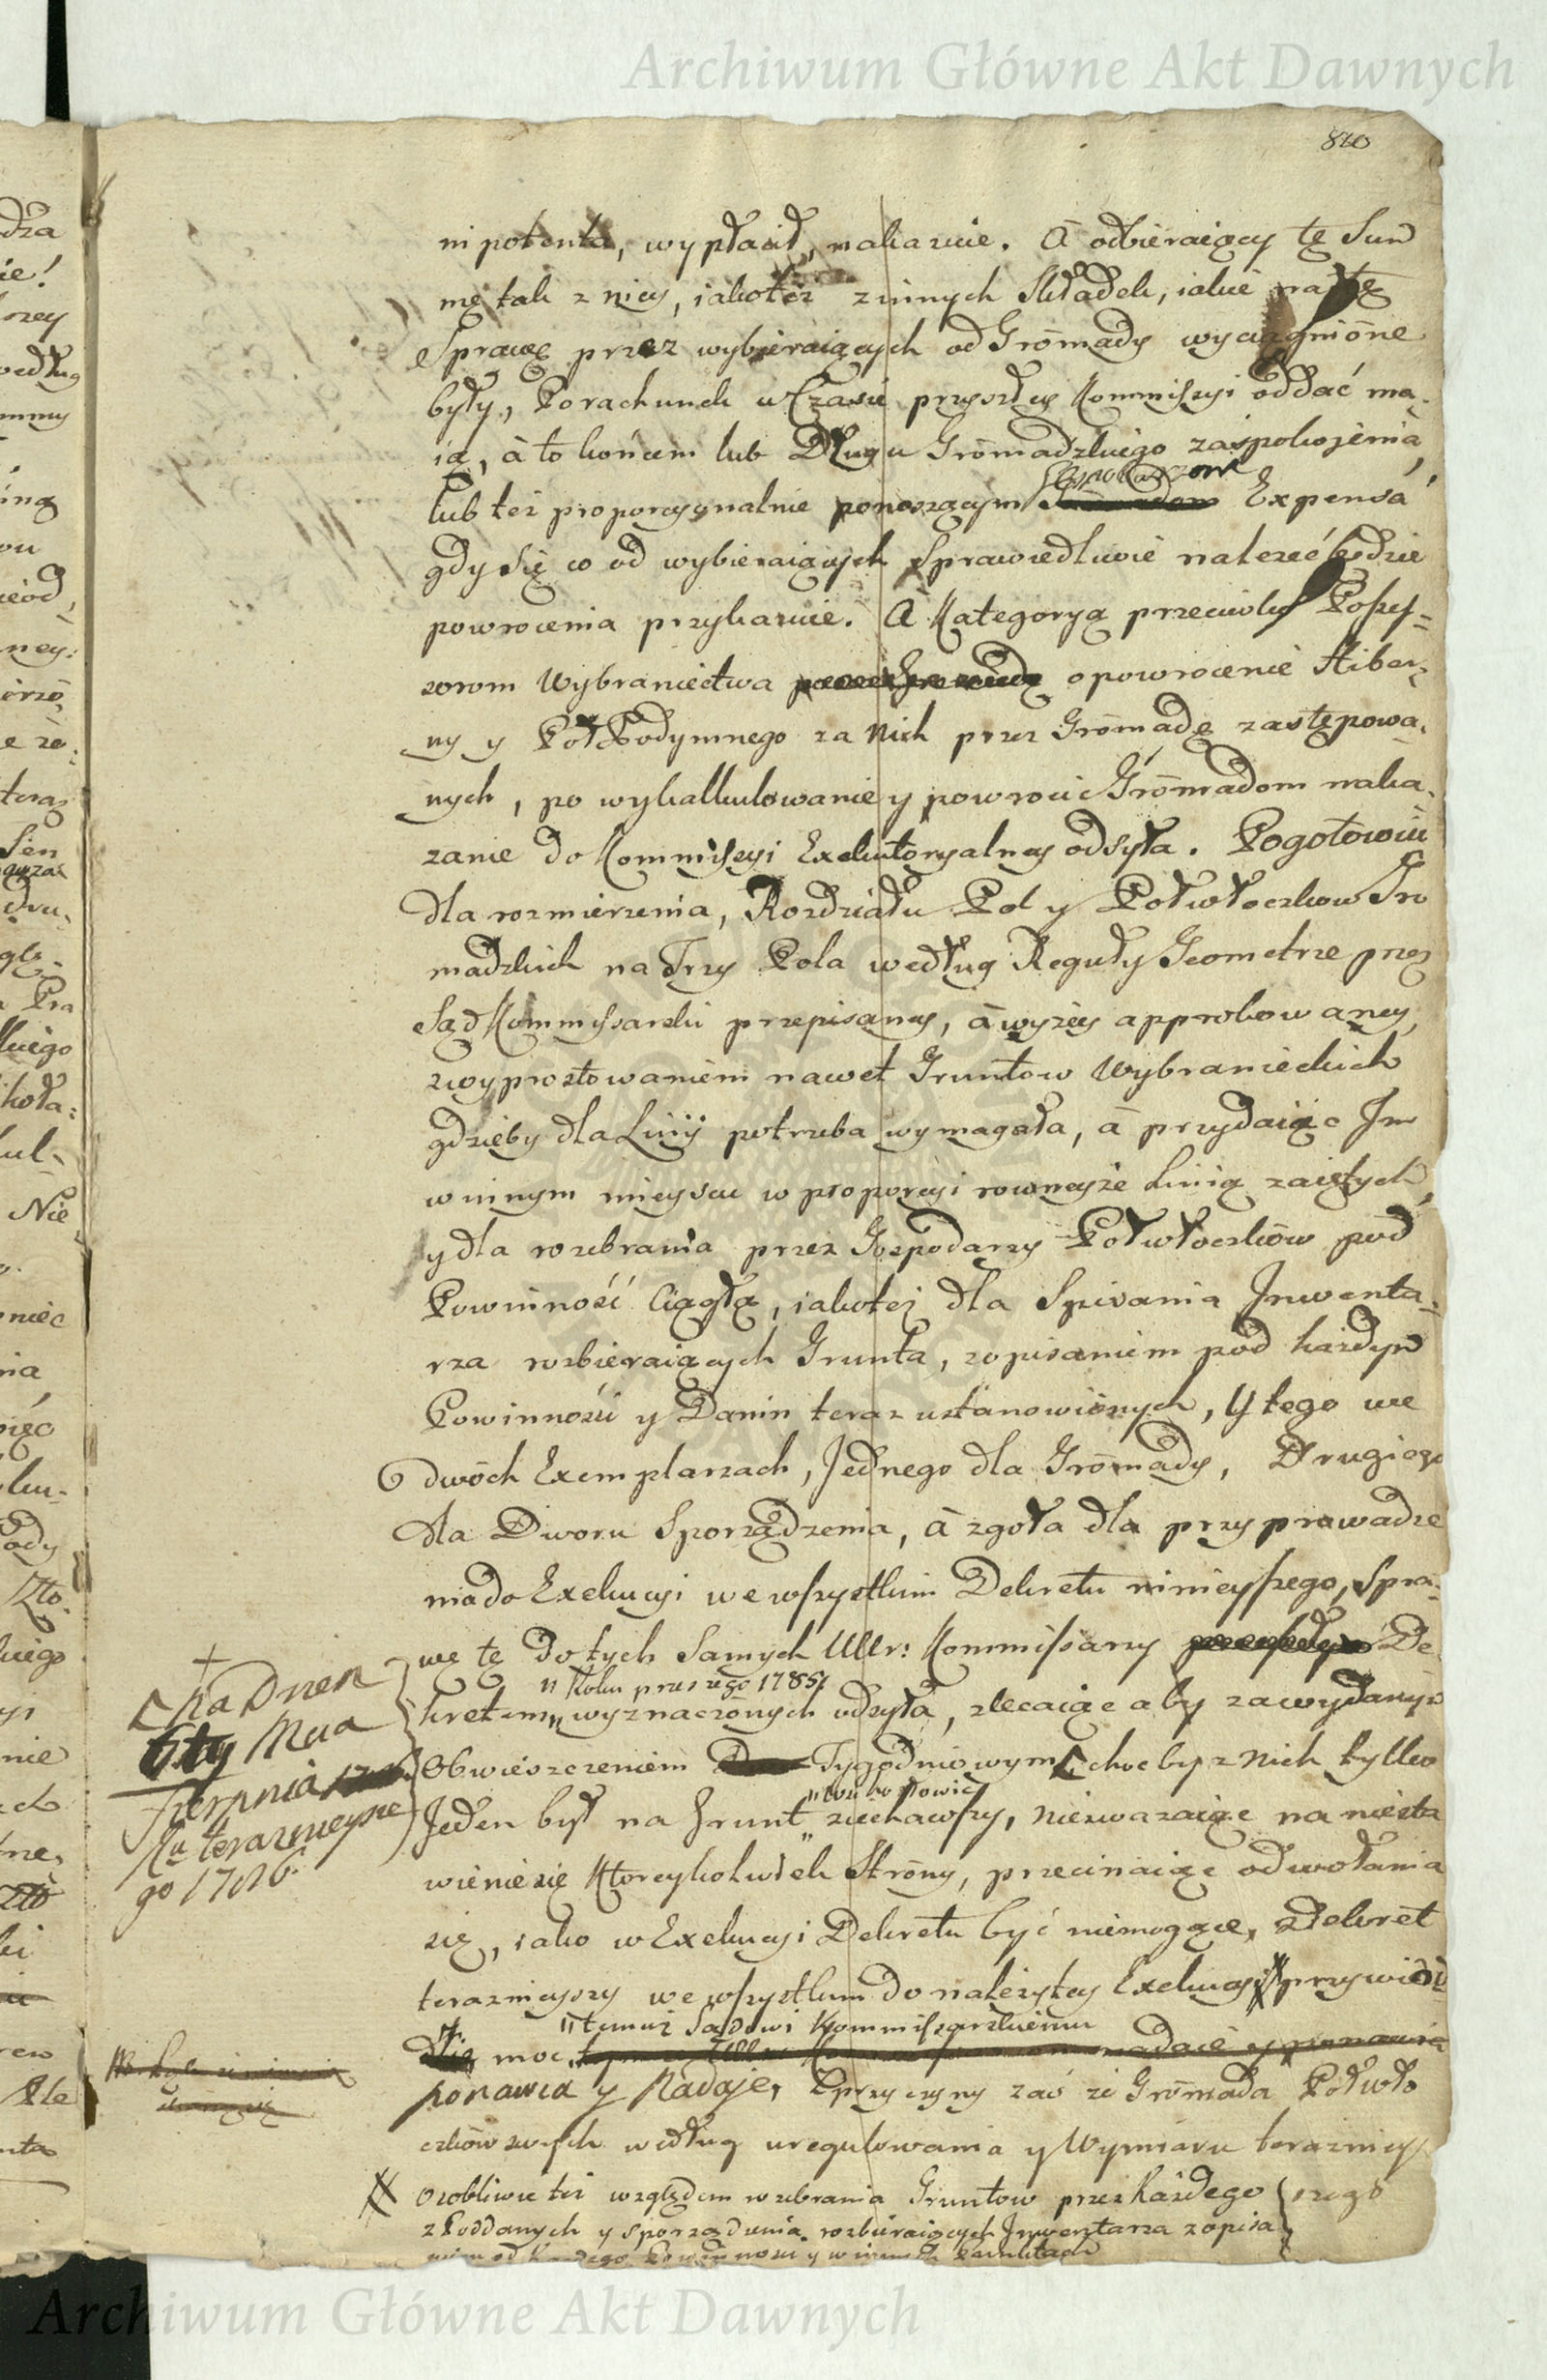 Archiwum Główne Akt Dawnych
820
nipotenta, wypłacił, nakazuie. A odbieraiący tę Sum
mę tak z niey, iakoteż z innych Składek, iakie na tę
Sprawę przez wybieraiących od Gromady wyciągnione
były, Porachunek w Czasie przyszłey Kommissyi oddać ma-
ią, à to końcem lub Długu Gromadzkiego zaspokoienia
Gospodarzom
lub też proporcyonalnie ponoszącym Expensa
gdy się co od wybieraiących Sprawiedliwie należeć będzie
powrocenia przykazuie. A Kategoryą przeciwko Possess=
sorom Wybraniectwa o powrocenie Hiber-
ny y Półpodymnego za Nich przez Gromadę zastępowa-
nych, po wykalkulowanie y powrocić Gromadom naka-
zanie do Kommissyi Exekutoryalney odsyła. Pogotowiu
dla rozmierzenia, Rozdziału Pol y Połwłoczkow Gro
madzkich na Trzy Pola według Reguły Geometrze przez
Sąd Kommissarski przepisaney, à wyżey approbowaney,
z wyprostowaniem nawet Gruntow Wybranieckich
gdzieby dla Linij potrzeba wymagała, à przydaiąc Im
w innym mieyscu w proporcyi rowneyże Linią zaiętych,
y dla rozebrania przez Gospodarzy Połwłoczkow pod
Powinność Ciągłą, iakoteż dla Spisania Inwenta-
rza rozbieraiących Grunta, z opisaniem pod każdym
Powinności y Danin teraz ustanowionych, Y tego we
dwoch Exemplarzach, Jednego dla Gromady, Drugiego
dla Dworu Sporządzenia, à zgoła dla przyprowadze
nia do Exekucyi we wszystkim Dekretu ninieyszego, Spra-
wę tę do tych Samych Ur: Kommissarzy De
" Roku przeszłego 1785
kretem " wyznaczonych odsyła, zlecaiąc aby za wydanym
Obwieszczeniem Tygodniowym choćby z Nich tylko
Jeden był na Grunt ziechawszy, niezważaiąc na niesta
wienie się Ktoreykolwiek Strony, przecinaiąc odwołania
się, iako w Exekucyi Dekretu być niemogące, Dekret
teraznieyszy we wszystkim do należytey Exekucyi przywiódł
" temuż Sądowi Kommissarskiemu
moc
ponawia y Nadaje, Z przyczyny zaś że Gromada Połwło
czkow swych według uregulowania y Wymiaru teraznieysz
szego
# Osobliwie też względem rozebrania Gruntow przez Każdego
z Poddanych y sporządzenia rozbieraiących Inwentarza z opisa
+
Na Dzień
6ty M-ca
Sierpnia
Ru teraznieysze
go 1786
Archiwum Główne Akt Dawnych